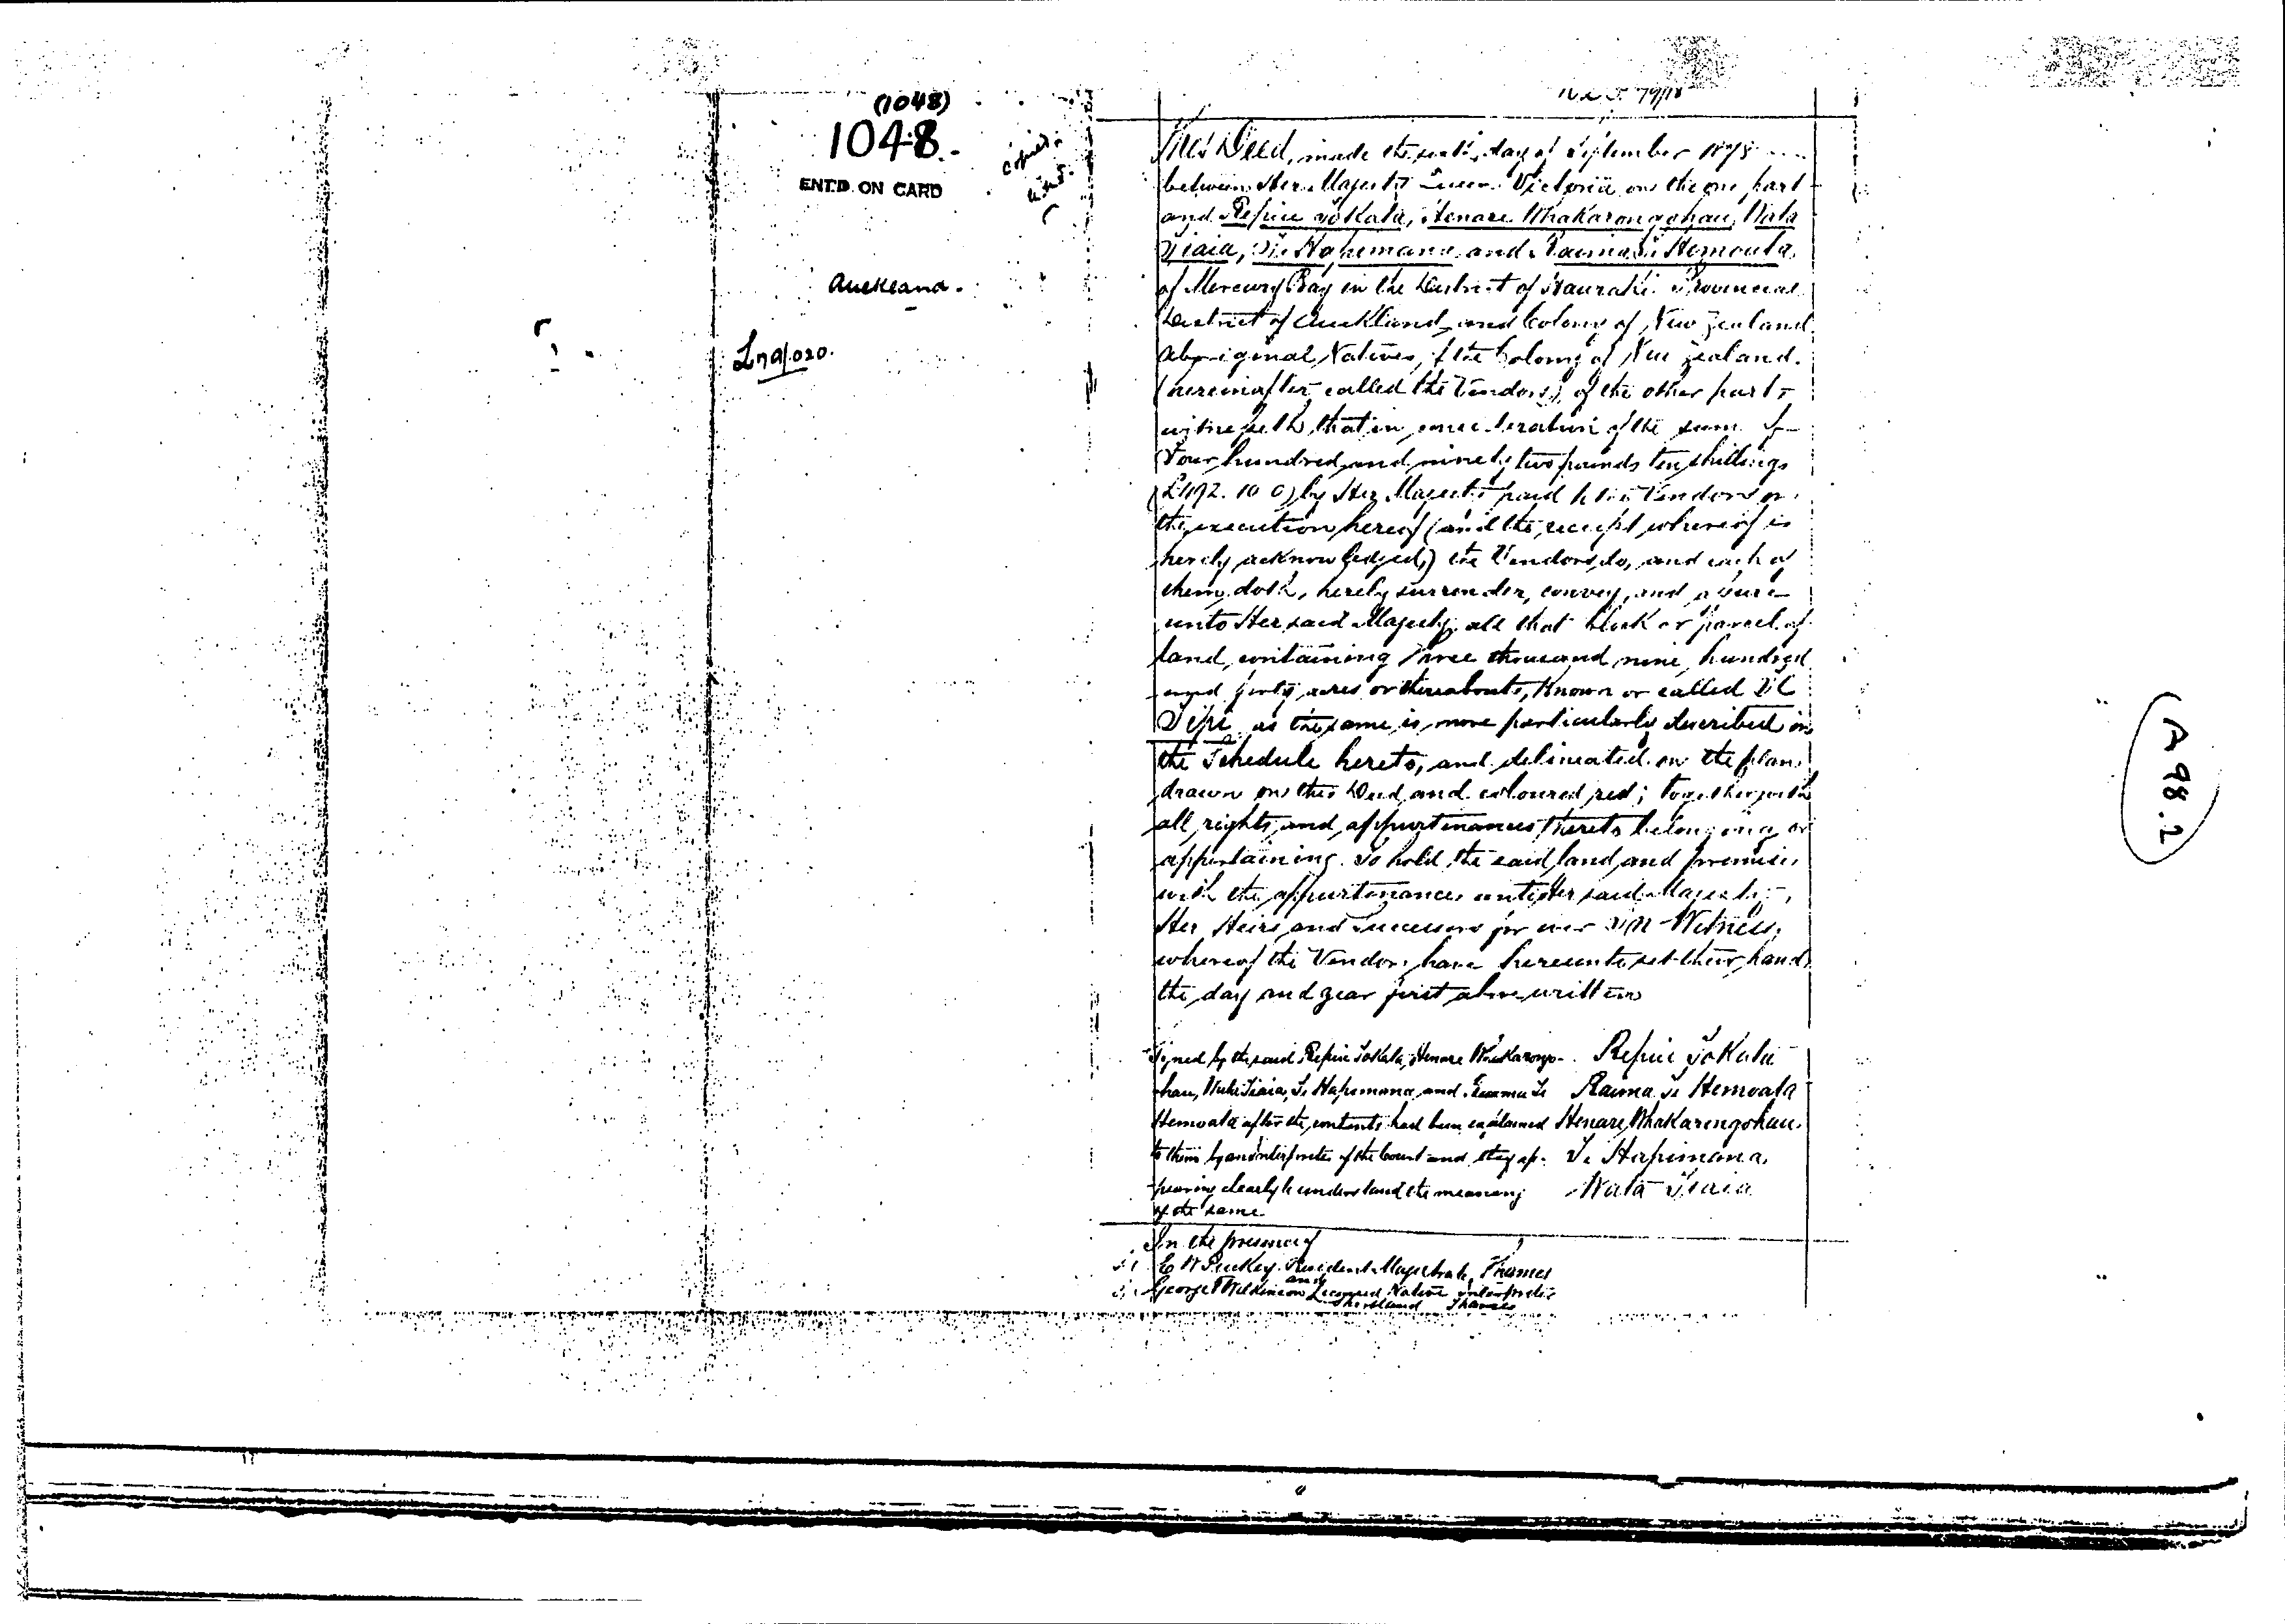 (1048)
1048.
ENT'D. ON CARD
Auckland.
N.L.P. 79/18
This Deed, made the sixth day of September 1878
between Her Majesty Queen Victoria on the one part
and Repiu Tokata, Henare Whakarongohau, Wata
Tiaia, Te Hapimana and Raima Te Hemoata
of Mercury Bay in the District of Hauraki Provincial
District of Auckland, and Colony of New Zealand
Aboriginal Natives, of the Colony of New Zealand.
(hereinafter called the Vendors), of the other part
witnesseth, that in consideration of the sum of
Four hundred and ninety two pounds ten shillings
(£492. 10 0) by Her Majesty paid to the Vendors on
the execution hereof (and the receipt whereof is
hereby acknowledged,) the Vendors do, and each of
them doth, hereby surrender, convey, and assure
unto Her said Majesty all that block or parcel of
land, containing three thousand nine hundred
and forty acres or thereabouts, known or called Te
Tipi as the same is more particularly described in
the Schedule hereto, and delineated on the plan
drawn on this Deed and coloured red; together with
all rights and appurtenances thereto belonging or
appertaining. To hold the said land and premises
with the appurtenances unto Her said Majesty,
Her Heirs and Successors for ever In Witness
whereof the Vendors have hereunto set their hands
the day and year first above written
Signed by the said Repiu Tokata, Henare Whakarongo- Repiu Tokata
hau, Wata Tiaia, Te Hapimana, and Raima Te Raima Te Hemoata
Hemoata after the contents had been explained Henare Whakarongohau
to them by an interpreter of the Court and they ap- Te Hapimana
pearing clearly to understand the meaning Wata Tiaia
of the same
In the presence of
E W Puckey. Resident Magistrate, Thames
and
George T Wilkinson Licensed Native Interpreter
Shortland Thames
A 98.2